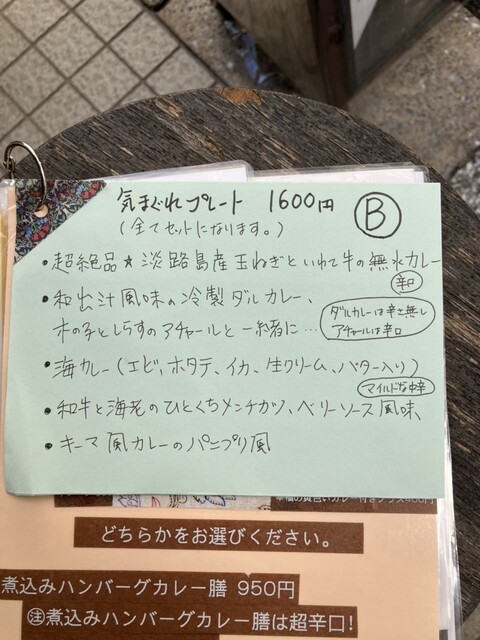 気まぐれプレート 1600円 Ⓑ
(全てセットになります。)
・超絶品★淡路島産玉ねぎといわて牛の無水カレー
辛口
・和出汁風味の冷製ダルカレー、
木の子としらすのアチャールと一緒に…
ダルカレーは辛さ無し
アチャールは辛口
・海カレー(エビ、ホタテ、イカ、生クリーム、バター入り)
マイルドな中辛
・和牛と海老のひとくちメンチカツ、ベリーソース風味
・キーマ風カレーのパニプリ風
どちらかをお選びください。
煮込みハンバーグカレー膳 950円
㊟煮込みハンバーグカレー膳は超辛口!